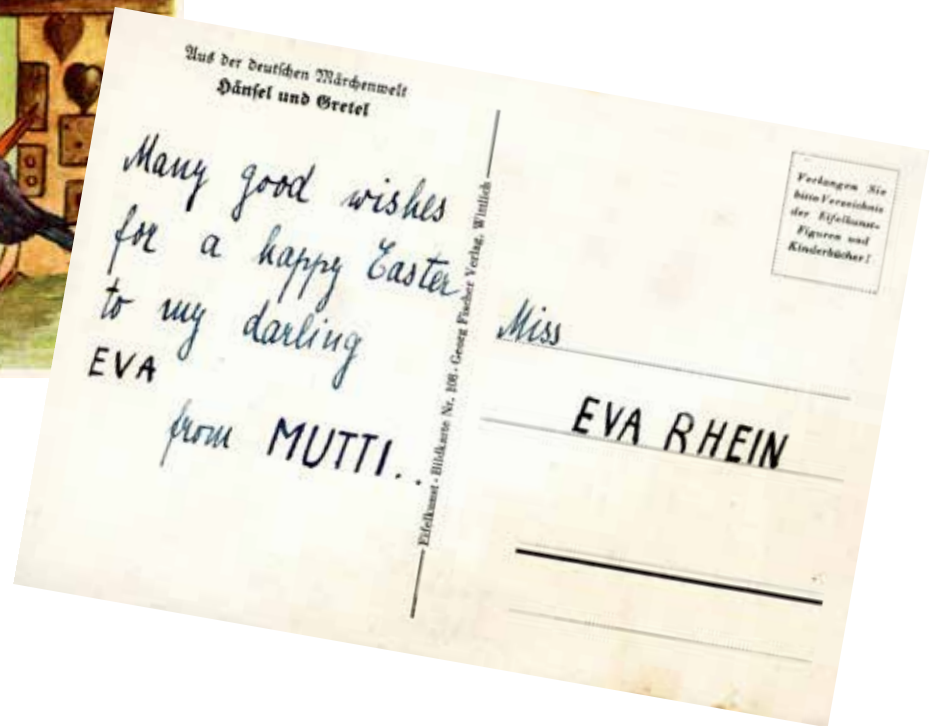 Aus der deutschen Märchenwelt
Hänsel und Gretel
Many good wishes
for a happy Easter
to my darling
EVA
from MUTTI..
Eifelkunst-Bildkarte Nr. 108 - Georg Fischer Verlag, Wittlich
Verlangen Sie
bitte Verzeichnis
der Eifelkunst-
Figuren und
Kinderbücher!
Miss
EVA RHEIN